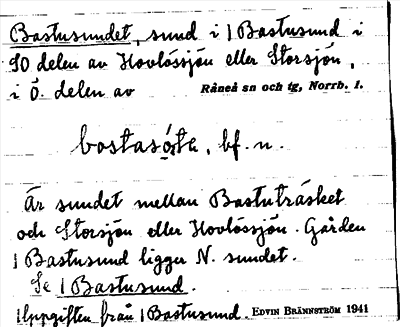 Bastusundet, sund i 1 Bastusund i
SO delen av Hovlössjön eller Storsjön,
i Ö. delen av Råneå sn och tg, Norrb. l.
bastasó̱ṇte, bf. n.
Är sundet mellan Bastuträsket
och Storsjön eller Hovlössjön. Gården
1 Bastusund ligger N. sundet.
Se 1 Bastusund.
Uppgiften från 1 Bastusund. EDVIN BRÄNNSTRÖM 1941